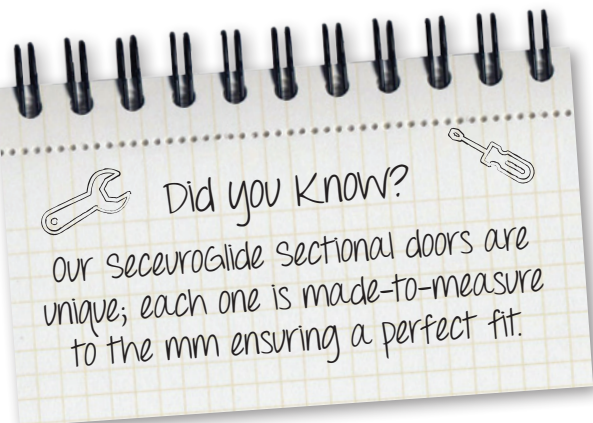 Did you Know?
our SeceuroGlide Sectional doors are
unique; each one is made-to-measure
to the mm ensuring a perfect fit.